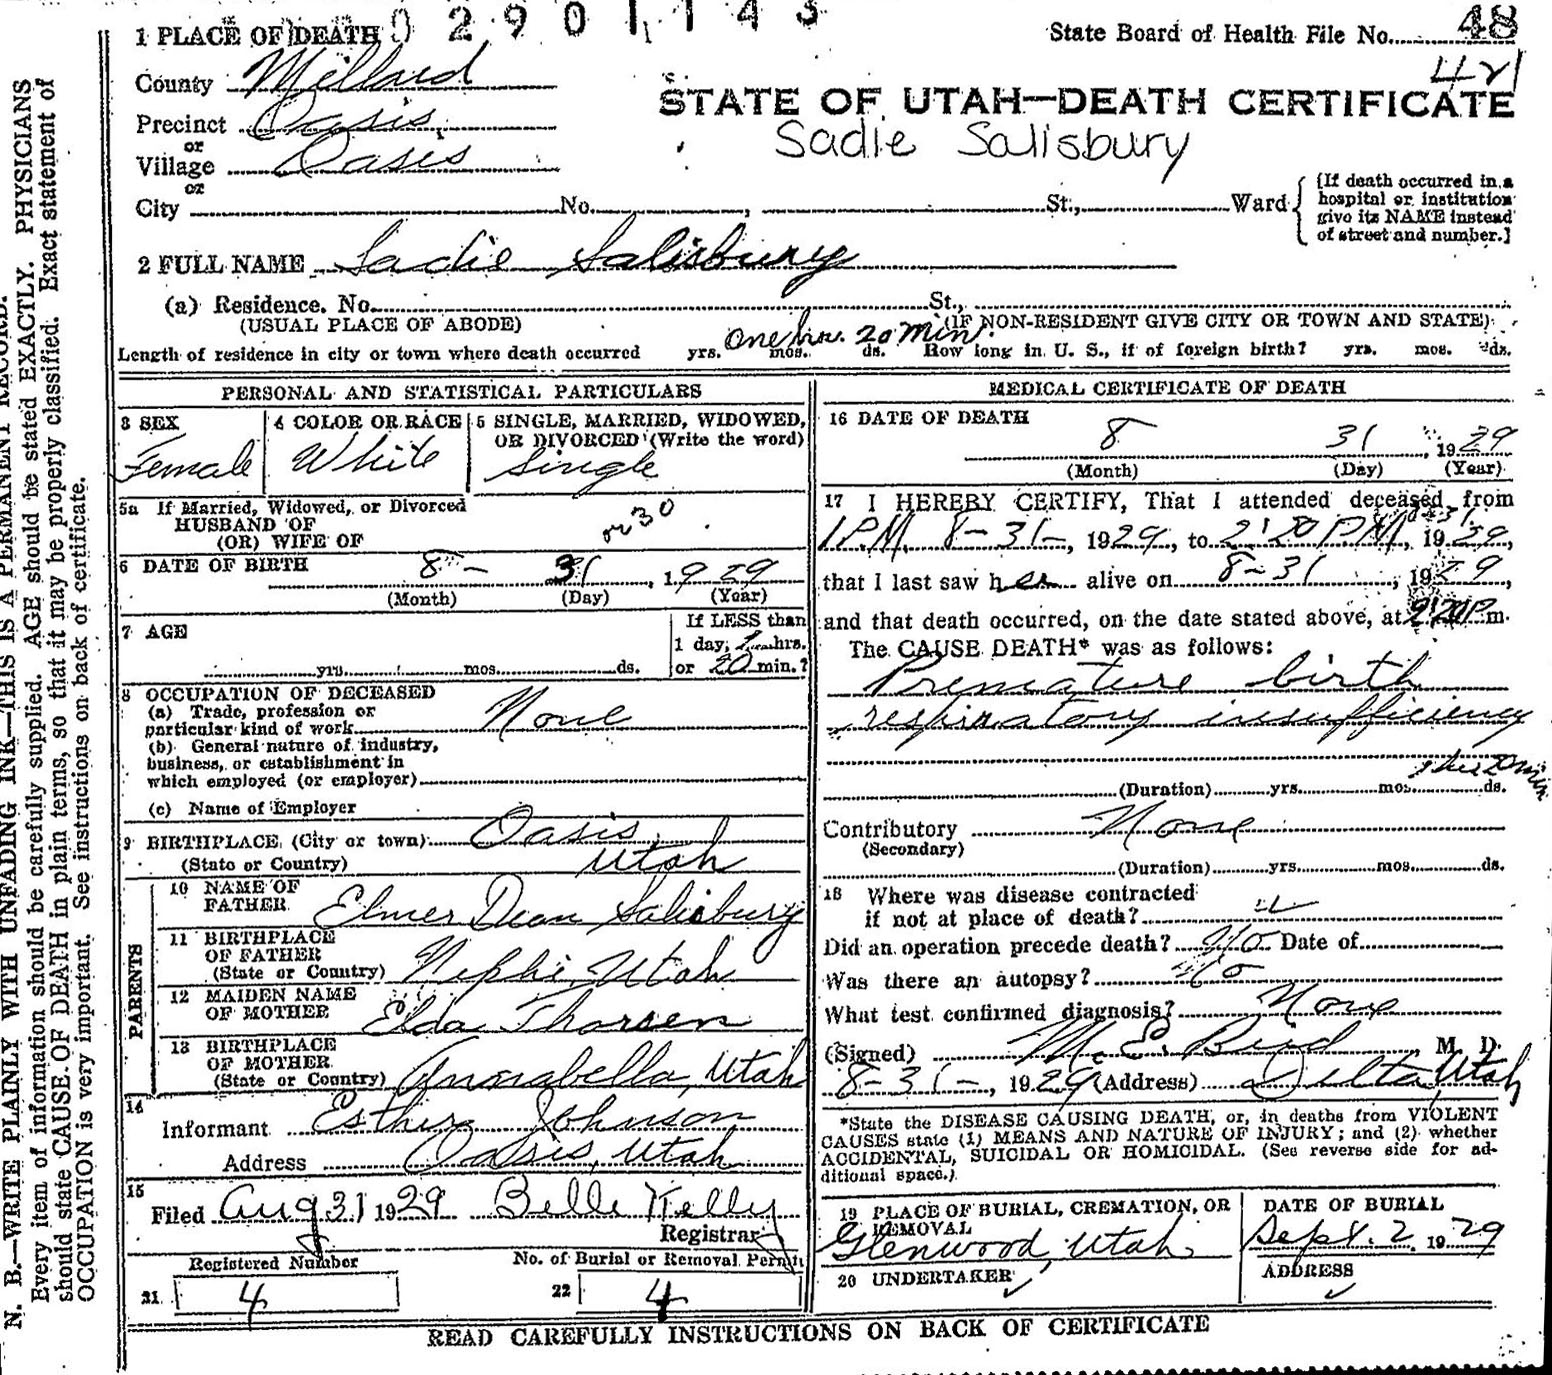 0 2 9 0 1 1 4 3
1 PLACE OF DEATH
State Board of Health File No. 48
421
County Millard
STATE OF UTAH—DEATH CERTIFICATE
Precinct Oasis
Sadie Salisbury
or
Village Oasis
or
City No. , St., Ward
[If death occurred in a
hospital or institution
give its NAME instead
of street and number.]
2 FULL NAME Sadie Salisbury
(a) Residence. No. St.,
(USUAL PLACE OF ABODE) (IF NON-RESIDENT GIVE CITY OR TOWN AND STATE)
one hr. 20 min.
Length of residence in city or town where death occurred yrs. mos. ds. How long in U. S., if of foreign birth? yrs. mos. ds.
PERSONAL AND STATISTICAL PARTICULARS
3 SEX
Female
4 COLOR OR RACE
White
5 SINGLE, MARRIED, WIDOWED,
OR DIVORCED (Write the word)
Single
5a If Married, Widowed, or Divorced
HUSBAND OF
(OR) WIFE OF
or 30
6 DATE OF BIRTH 8 - 31, 1929
(Month) (Day) (Year)
7 AGE
yrs. mos. ds.
If LESS than
1 day, 1 hrs.
or 20 min.?
8 OCCUPATION OF DECEASED
(a) Trade, profession or
particular kind of work None
(b) General nature of industry,
business, or establishment in
which employed (or employer)
(c) Name of Employer
9 BIRTHPLACE (City or town) Oasis
(State or Country) Utah
PARENTS
10 NAME OF
FATHER Elmer Dean Salisbury
11 BIRTHPLACE
OF FATHER
(State or Country) Nephi, Utah
12 MAIDEN NAME
OF MOTHER Elda Thorsen
13 BIRTHPLACE
OF MOTHER
(State or Country) Annabella, Utah
14
Informant Esther Johnson
Address Oasis, Utah
15
Filed Aug 31 1929 Belle Kelly
Registrar
Registered Number
21 4
No. of Burial or Removal Permit
22 4
MEDICAL CERTIFICATE OF DEATH
16 DATE OF DEATH
8 31, 1929
(Month) (Day) (Year)
17 I HEREBY CERTIFY, That I attended deceased from
8-31
1 P.M. 8-31-, 1929, to 2:20 PM, 1929,
that I last saw her alive on 8-31, 1929,
and that death occurred, on the date stated above, at 2:20 P m.
The CAUSE DEATH* was as follows:
Premature birth
respiratory insufficiency
1 hr 20 min
(Duration) yrs. mos. ds.
Contributory None
(Secondary)
(Duration) yrs. mos. ds.
18 Where was disease contracted
if not at place of death?
Did an operation precede death? No Date of
Was there an autopsy? No
What test confirmed diagnosis? None
(Signed) M. E. Bird M. D.
8-31-, 1929 (Address) Delta, Utah
*State the DISEASE CAUSING DEATH, or, in deaths from VIOLENT
CAUSES state (1) MEANS AND NATURE OF INJURY; and (2) whether
ACCIDENTAL, SUICIDAL OR HOMICIDAL. (See reverse side for ad-
ditional space.)
19 PLACE OF BURIAL, CREMATION, OR
REMOVAL
Glenwood, Utah
DATE OF BURIAL
Sept. 2, 1929
20 UNDERTAKER
ADDRESS
READ CAREFULLY INSTRUCTIONS ON BACK OF CERTIFICATE
N. B.—WRITE PLAINLY WITH UNFADING INK—THIS IS A PERMANENT RECORD.
Every item of information should be carefully supplied. AGE should be stated EXACTLY. PHYSICIANS
should state CAUSE OF DEATH in plain terms, so that it may be properly classified. Exact statement of
OCCUPATION is very important. See instructions on back of certificate.